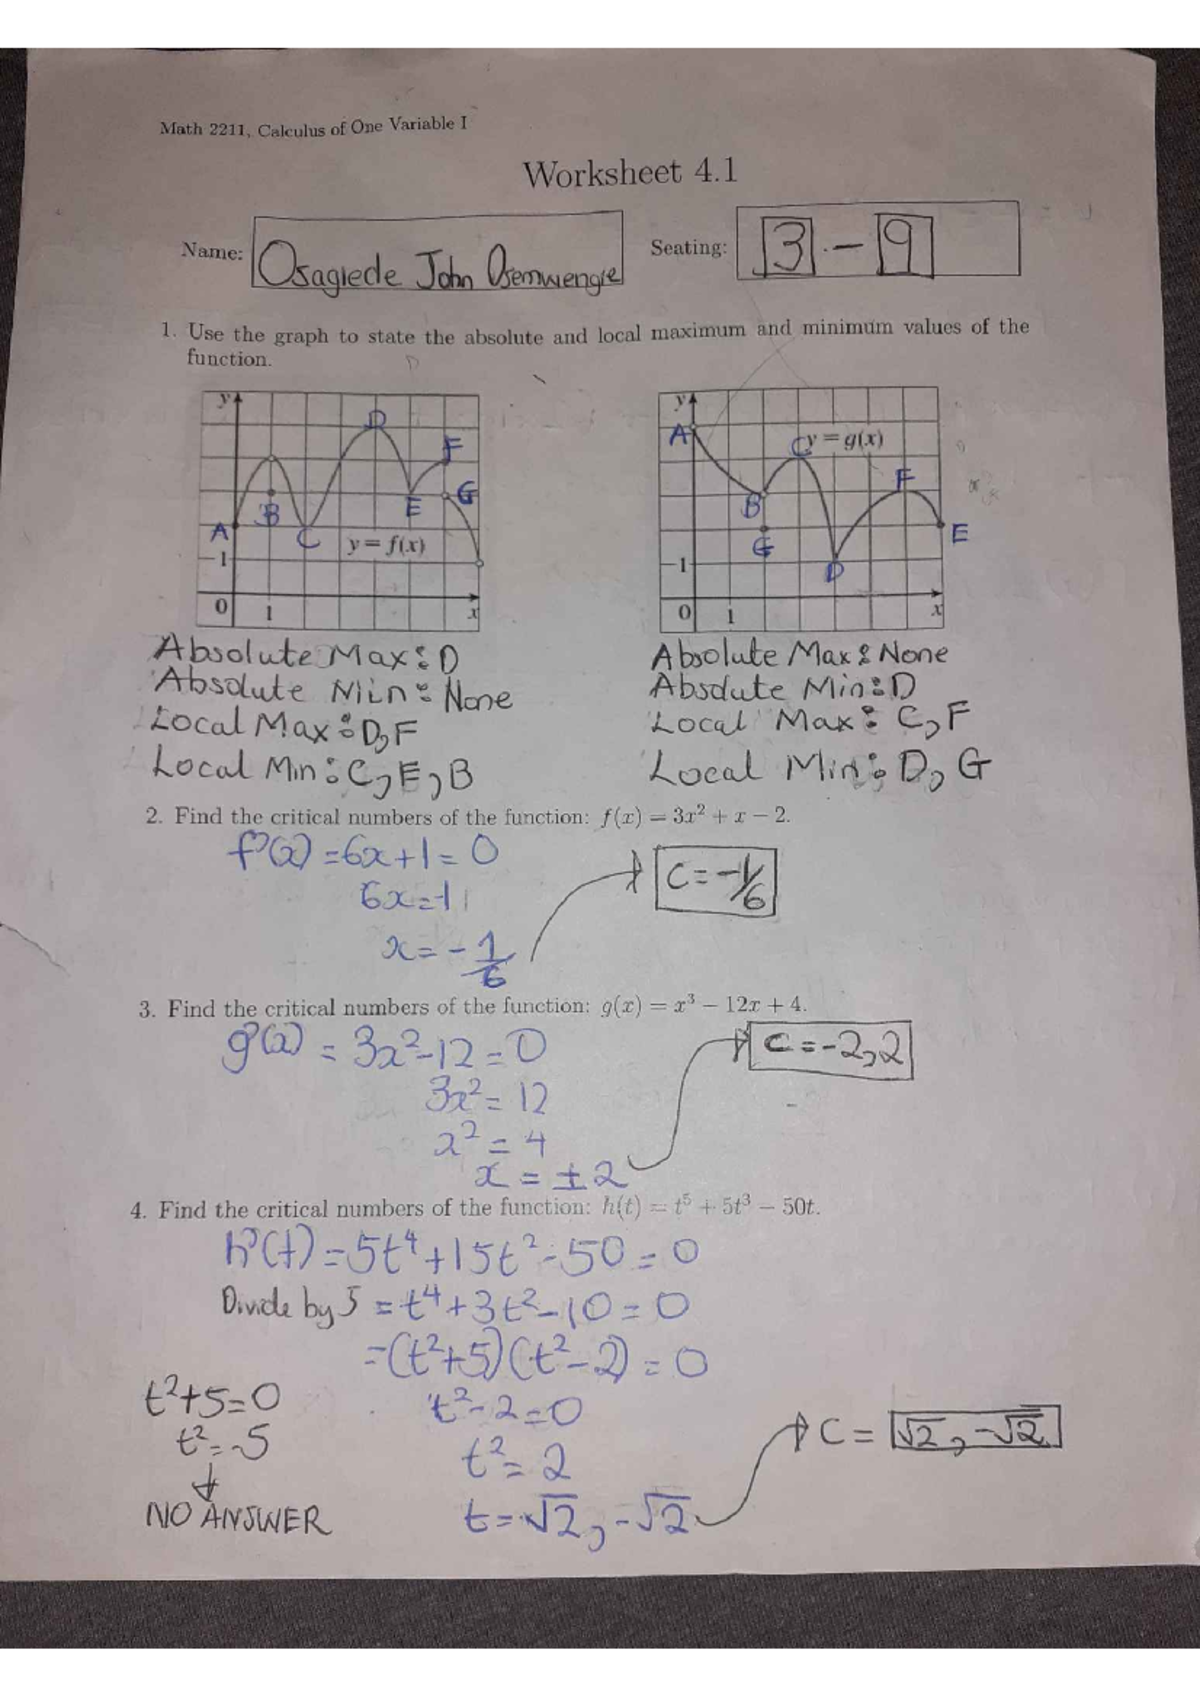 Math 2211, Calculus of One Variable I
Worksheet 4.1
Name: Osagiede John Osemwengie Seating: 3 - 9
1. Use the graph to state the absolute and local maximum and minimum values of the
function.
y D F B G E A C y = f(x) 1 0 1 x
y A C y = g(x) B F G E 1 D 0 1 x
Absolute Max: D
Absolute Min: None
Local Max: D, F
Local Min: C, E, B
Absolute Max: None
Absolute Min: D
Local Max: C, F
Local Min: D, G
2. Find the critical numbers of the function: f(x) = 3x² + x − 2.
f'(x) = 6x+1 = 0
6x = -1
x = -1/6
C = -1/6
3. Find the critical numbers of the function: g(x) = x³ − 12x + 4.
g'(x) = 3x²-12 = 0
3x² = 12
x² = 4
x = ±2
C = -2, 2
4. Find the critical numbers of the function: h(t) = t⁵ + 5t³ − 50t.
h'(t) = 5t⁴+15t²-50 = 0
Divide by 5 = t⁴+3t²-10 = 0
=(t²+5)(t²-2) = 0
t²+5=0
t²=-5
NO ANSWER
t²-2=0
t²=2
t=√2, -√2
C = √2, -√2